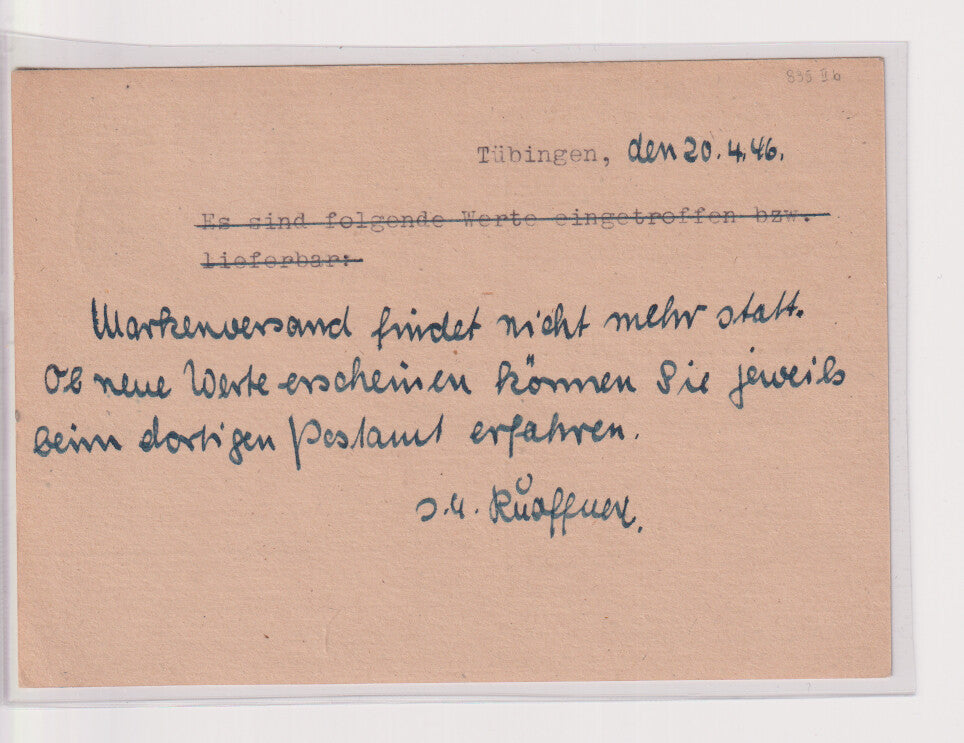 Tübingen, den 20.4.46.
Es sind folgende Werte eingetroffen bzw.
lieferbar:
Markenversand findet nicht mehr statt.
Ob neue Werte erscheinen können Sie jeweils
beim dortigen Postamt erfahren.